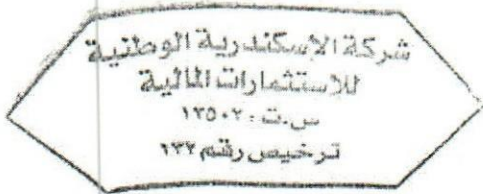 شركة الإسكندرية الوطنية
للاستثمارات المالية
س.ت : ١٣٥٠٢
ترخيص رقم ١٣٢